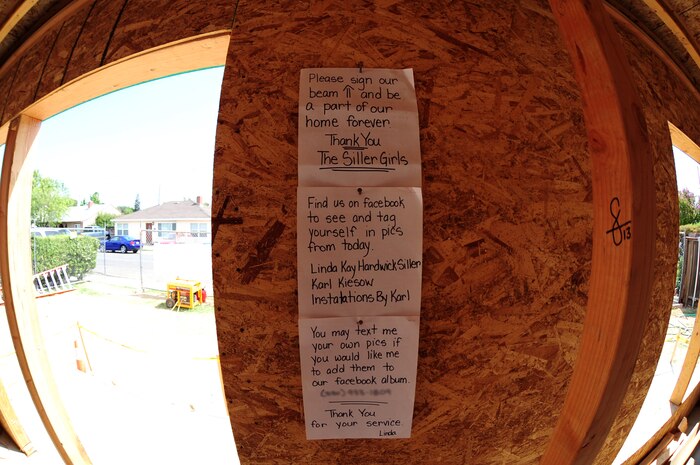 Please sign our
beam ⇑ and be
a part of our
home forever
Thank You
The Siller Girls
Find us on facebook
to see and tag
yourself in pics
from today.
Linda Kay Hardwick Siller
Karl Kiesow
Installations By Karl
You may text me
your own pics if
you would like me
to add them to
our facebook album.
Thank You
for your service.
Linda
13